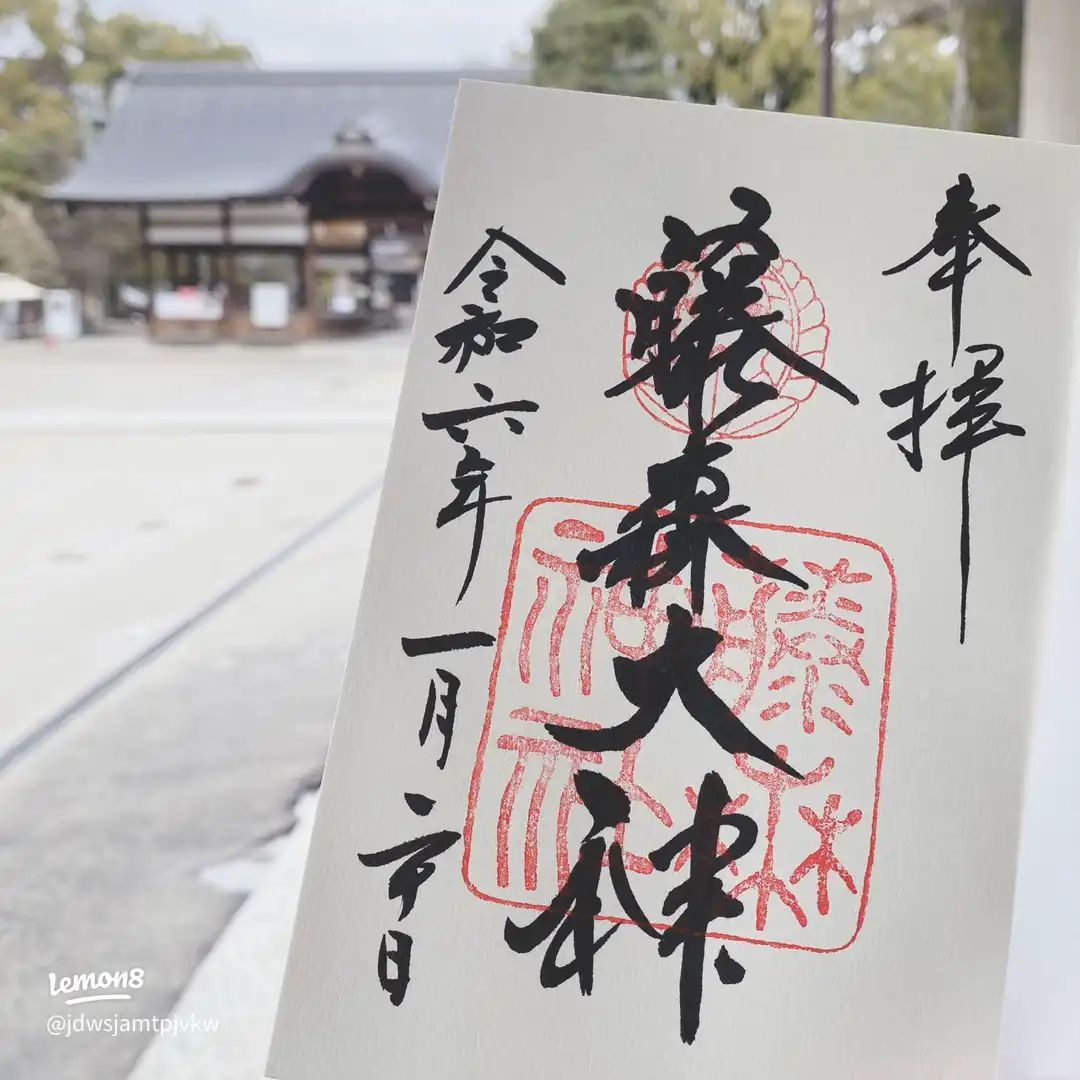 奉拝
藤森大神
藤森神社
令和六年一月二十日
lemon8
@jdwsjamtpjvkw